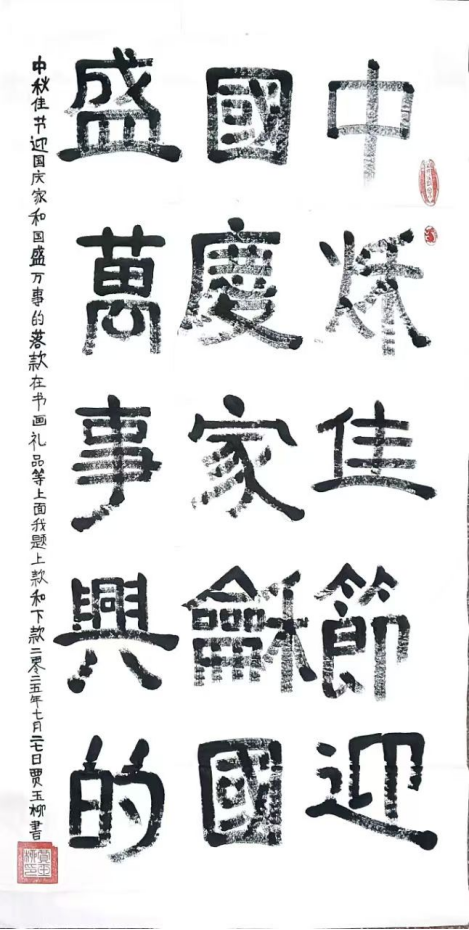 中秌佳節迎
國慶家龢國
盛萬事興的
中秋佳节迎国庆家和国盛万事的落款在书画礼品等上面我题上款和下款二零二五年七月二七日贾玉柳書